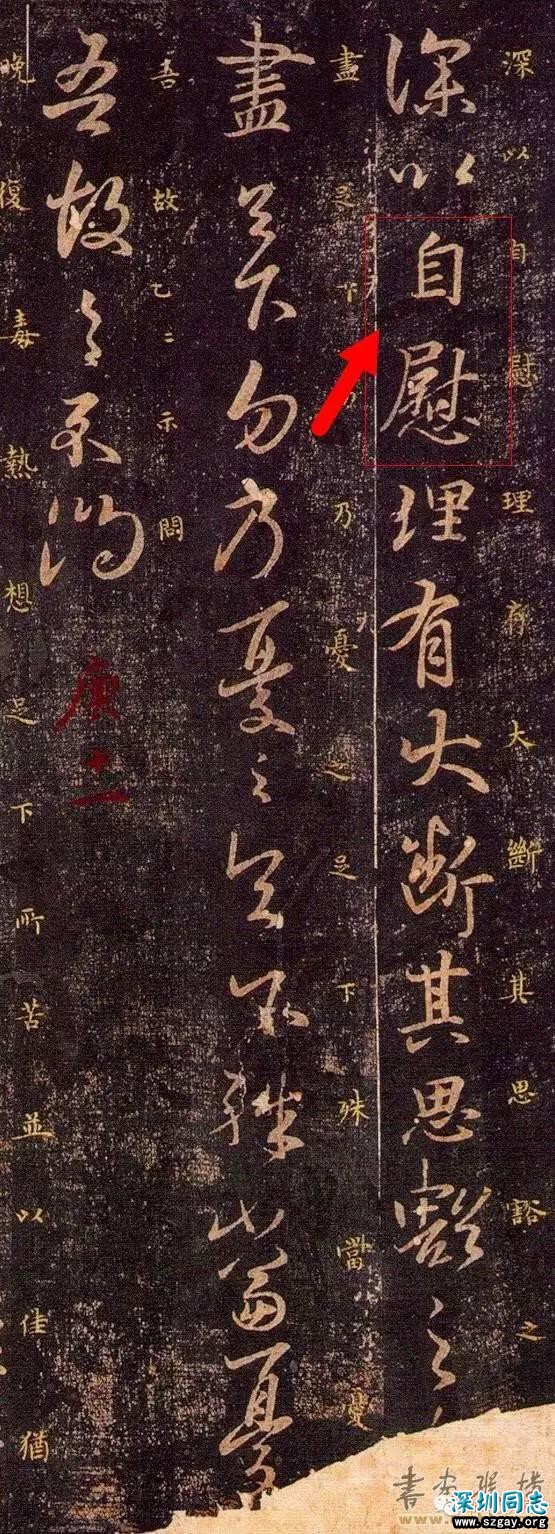 深以自慰理有大斷其思豁之
深以自慰理有大斷其思豁之
盡足下勿乃憂之足下殊當憂
盡足下勿乃憂之足下殊當憂
吾故乙二示問
吾故示問
庚十一
晚復毒熱想足下所苦並以佳猶
深圳同志
www.szgay.org